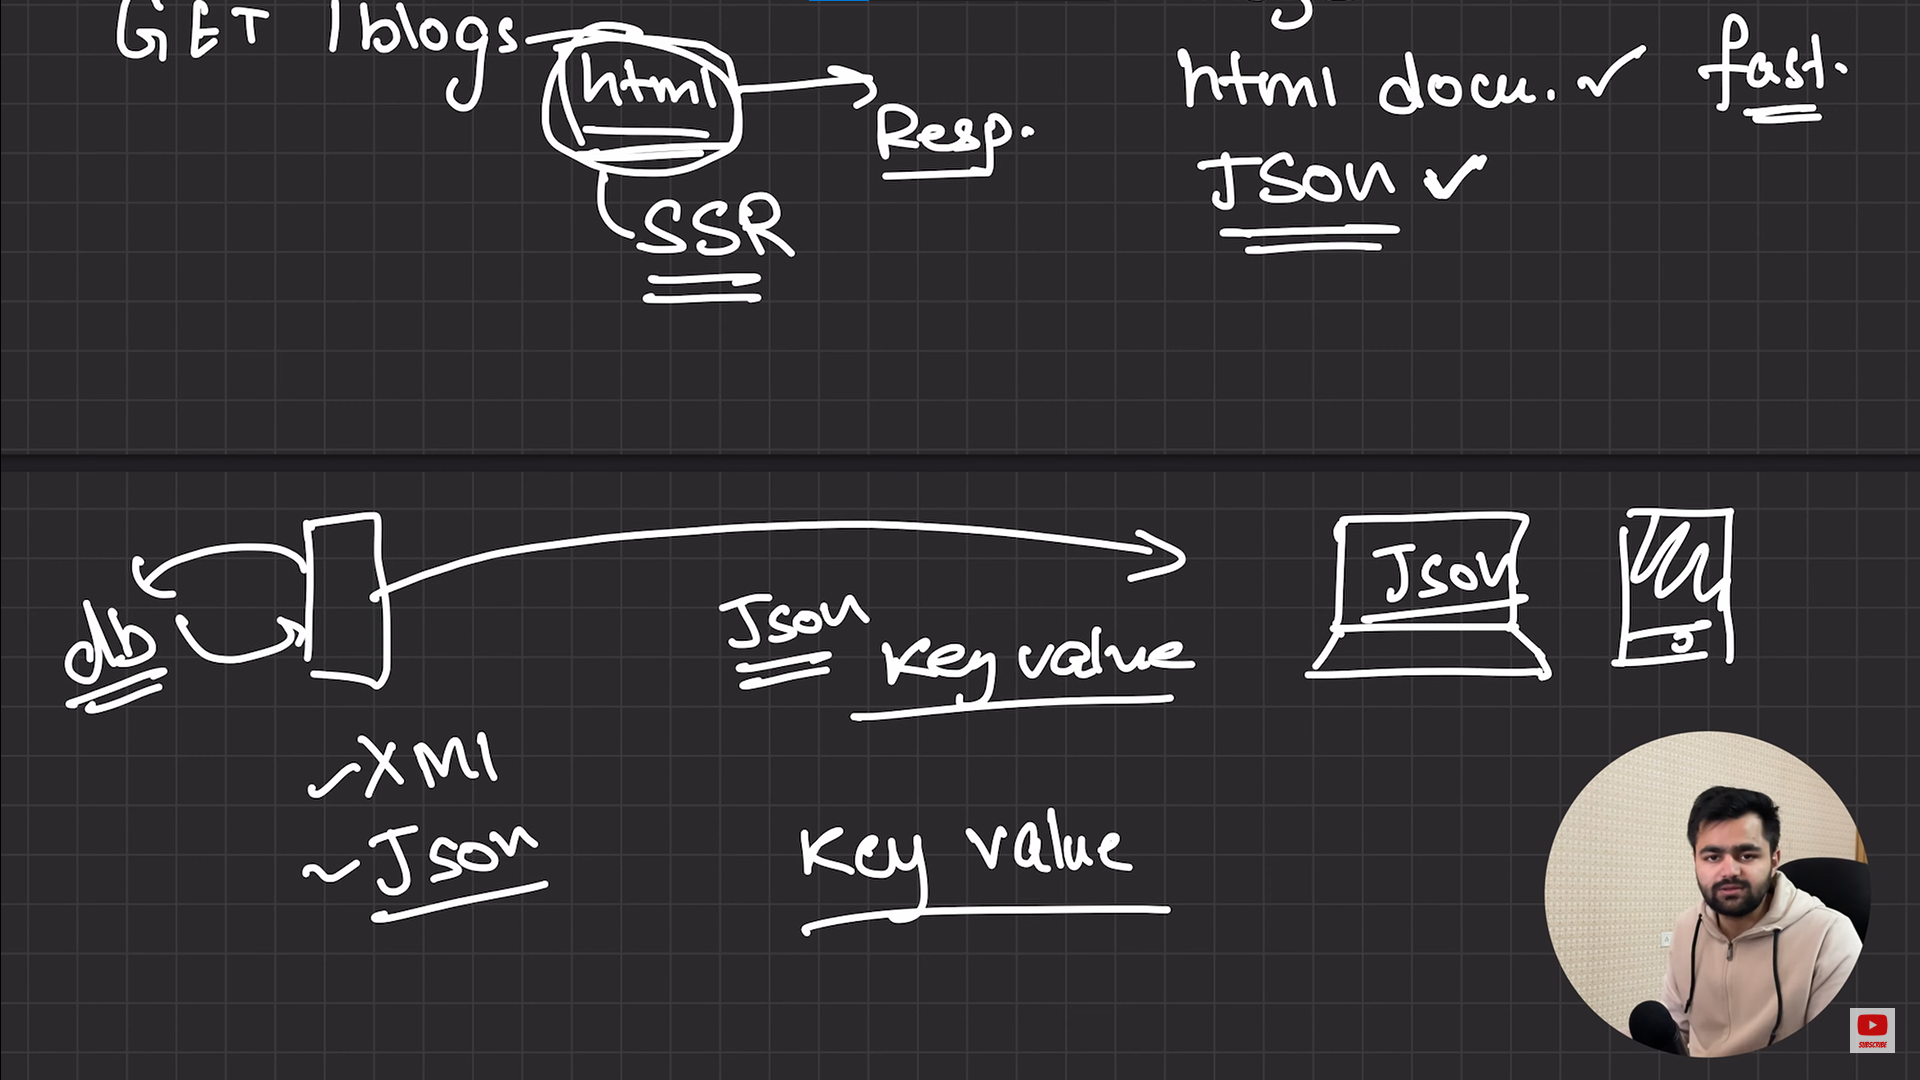 GET /blogs
html
Resp.
SSR
html docu. ✓ fast.
JSON ✓
db
Json
Key value
Json
✓ XMl
~ Json
Key value
SUBSCRIBE